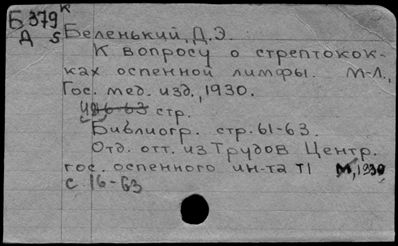 Б 379 к
Д 5
Беленький, Д.Э.
К вопросу о стрептокок-
ках оспенной лимфы. М-Л.,
Гос. мед. изд., 1930.
стр.
Библиогр. стр. 61-63.
Отд. отт. из Трудов Центр.
гос. оспенного ин-та Т1 М, 1930
с. 16-63